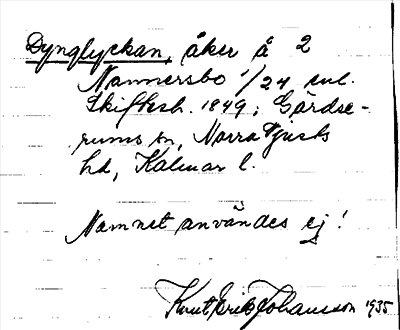 Dynglyckan, åker å 2
Nannersbo 1/24 enl.
Skiftesh. 1849; Gärdse-
rums sn, Norra Tjusts
hd, Kalmar l.
Namnet användes ej!
Knut Erik Johansson 1935